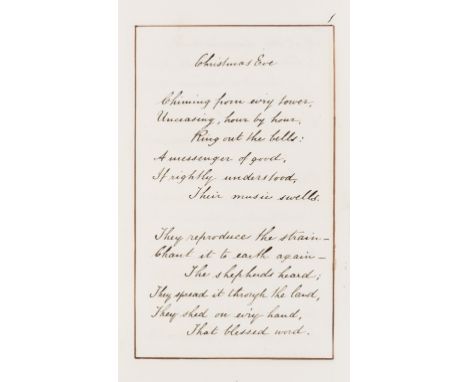 1
Christmas Eve
Chiming from ev'ry tower,
Unceasing, hour by hour,
Ring out the bells:
A messenger of good,
If rightly understood,
Their music swells.
They reproduce the strain—
Chant it to earth again—
The shepherds heard;
They spread it through the land,
They shed on ev'ry hand,
That blessed word.